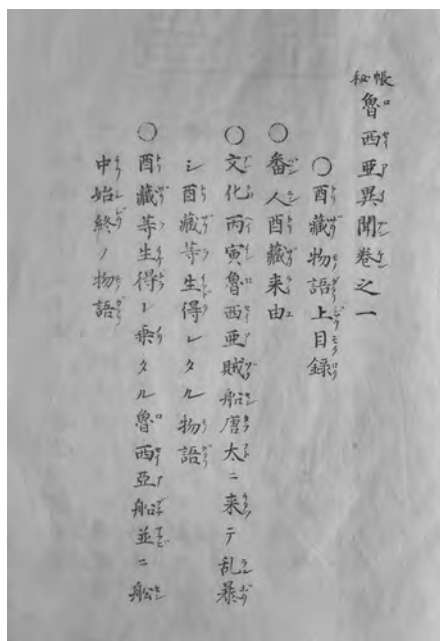 秘帳魯西亜異聞巻之一
〇酉蔵物語上目録
〇番人酉蔵来由
〇文化丙寅魯西亜賊船唐太ニ来テ乱暴
シ酉蔵等生得レタル物語
〇酉蔵等生得レ乗タル魯西亜船並ニ舩
中始終ノ物語